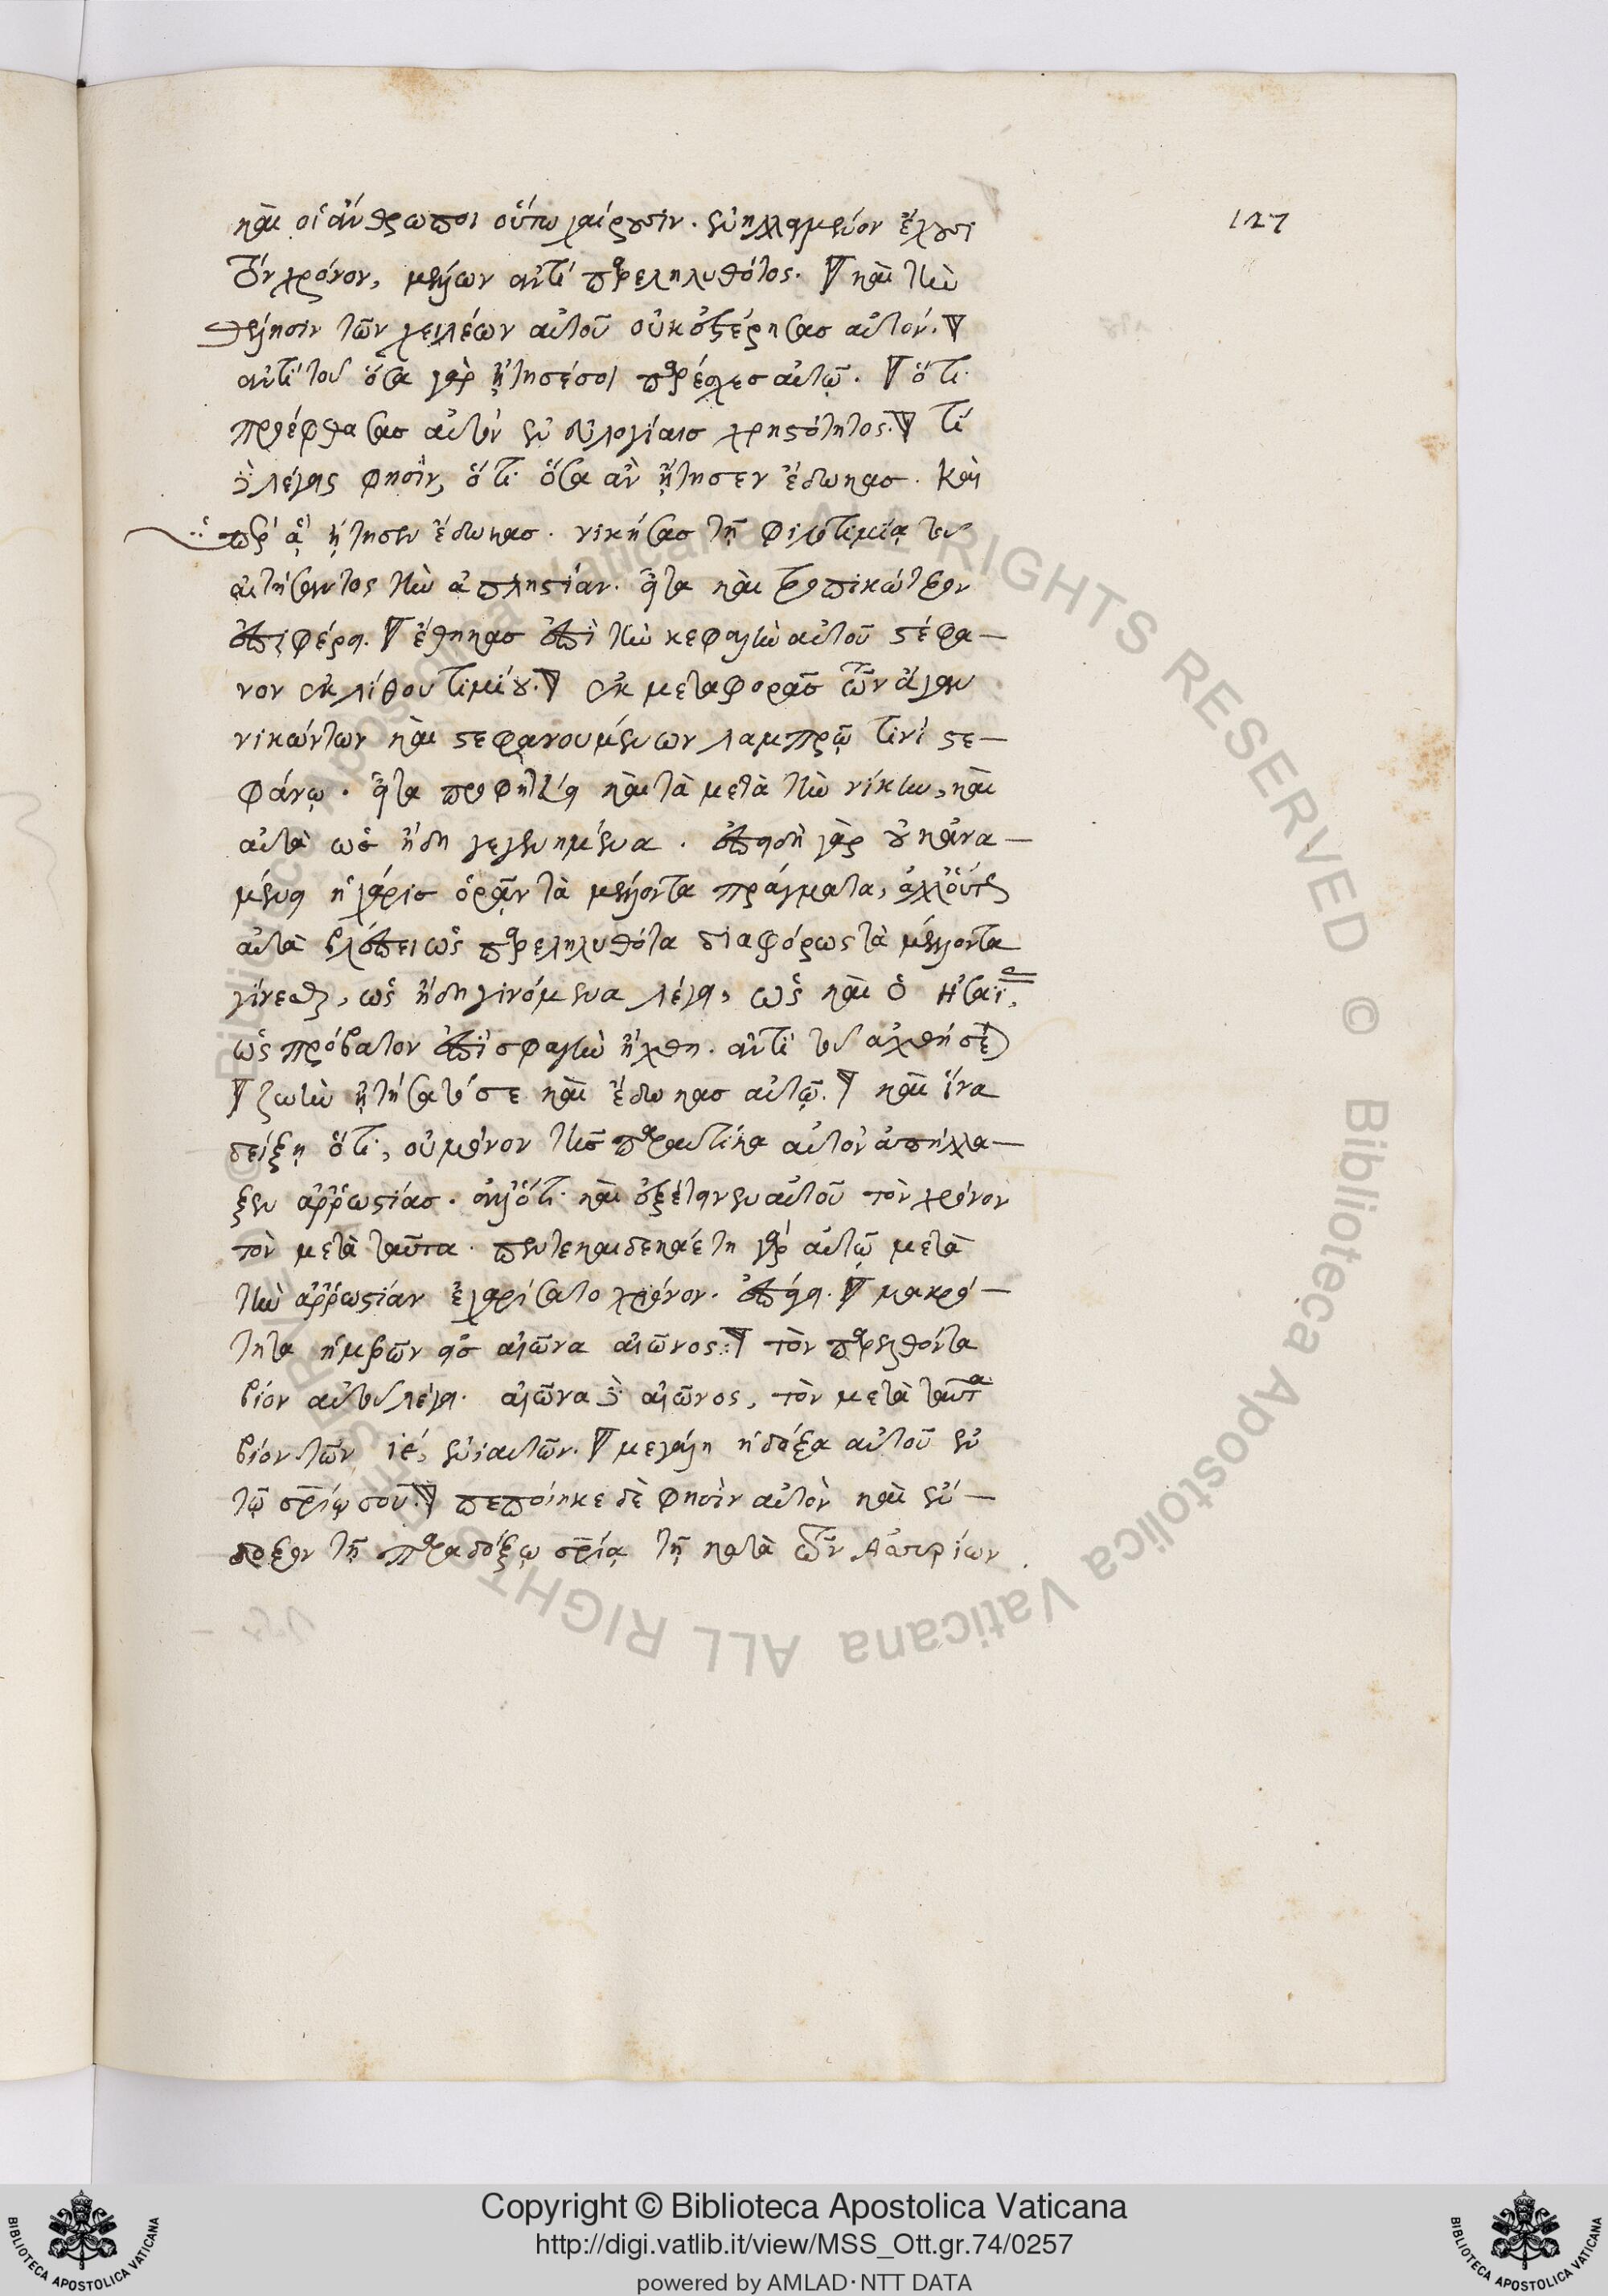 καὶ οἱ ἄνθρωποι οὕτω χαίρουσιν. ἐνηλλαγμένον ἔχουσι
τὸν χρόνον, μέλλων ἀντὶ παρεληλυθότος. καὶ τὴν
θέλησιν τῶν χειλέων αὐτοῦ οὐκ ἐστέρησας αὐτόν.
ἀντὶ τοῦ ὅσα γὰρ ᾔτησέ σοι παρέσχες αὐτῷ. ὅτι
προέφθασας αὐτὸν ἐν εὐλογίαις χρηστότητος. τί
δὲ λέγεις φησίν, ὅτι ὅσα ἂν ᾔτησεν ἔδωκας. καὶ
ᾔτησεν ἔδωκας. νικήσας τῇ φιλοτιμίᾳ τοῦ
αἰτήσαντος τὴν ἀπληστίαν. εἶτα καὶ τροπικώτερον
ἐπιφέρει. ἔθηκας ἐπὶ τὴν κεφαλὴν αὐτοῦ στέφα–
νον ἐκ λίθου τιμίου. ἐκ μεταφορᾶς τῶν ἄγαν
νικώντων καὶ στεφανουμένων λαμπρῷ τινὶ στε–
φάνῳ. εἶτα προφητεύει καὶ τὰ μετὰ τὴν νίκην, καὶ
αὐτὰ ὡς ἤδη γεγενημένα. ἐπειδὴ γὰρ οὐκ ἀνα–
μένει ἡ χάρις ὁρᾷν τὰ μέλλοντα πράγματα, ἀλλ' οὕτως
αὐτὰ βλέπει ὡς παρεληλυθότα διαφόρως τὰ μέλλοντα
γίνεσθαι, ὡς ἤδη γινόμενα λέγει, ὡς καὶ ὁ Ἠσαΐας
ὡς πρόβατον ἐπὶ σφαγὴν ἤχθη. ἀντὶ τοῦ ἀχθήσεται
ζωὴν ᾐτήσατό σε καὶ ἔδωκας αὐτῷ. καὶ ἵνα
δείξῃ ὅτι, οὐ μόνον τῆς παραυτίκα αὐτὸν ἀπήλλα–
ξεν ἀῤῥωστίας. ἀλλ' ὅτι καὶ ἐξέτεινεν αὐτοῦ τὸν χρόνον
τὸν μετὰ ταῦτα. πεντεκαιδεκαέτη γὰρ αὐτῷ μετὰ
τὴν ἀῤῥωστίαν ἐχαρίσατο χρόνον. ἐπάγει. μακρό–
τητα ἡμερῶν εἰς αἰῶνα αἰῶνος. τὸν παρελθόντα
βίον αὐτοῦ λέγει. αἰῶνα δὲ αἰῶνος, τὸν μετὰ ταῦτα
βίον τῶν ιε, ἐνιαυτῶν. μεγάλη ἡ δόξα αὐτοῦ ἐν
τῷ σρίῳ σου. πεποίηκε δὲ φησὶν αὐτὸν καὶ ἔν–
δοξον τῇ παραδόξῳ σρίᾳ τῇ κατὰ τῶν Ἀσσυρίων.
127
Copyright © Biblioteca Apostolica Vaticana
http://digi.vatlib.it/view/MSS_Ott.gr.74/0257
powered by AMLAD·NTT DATA